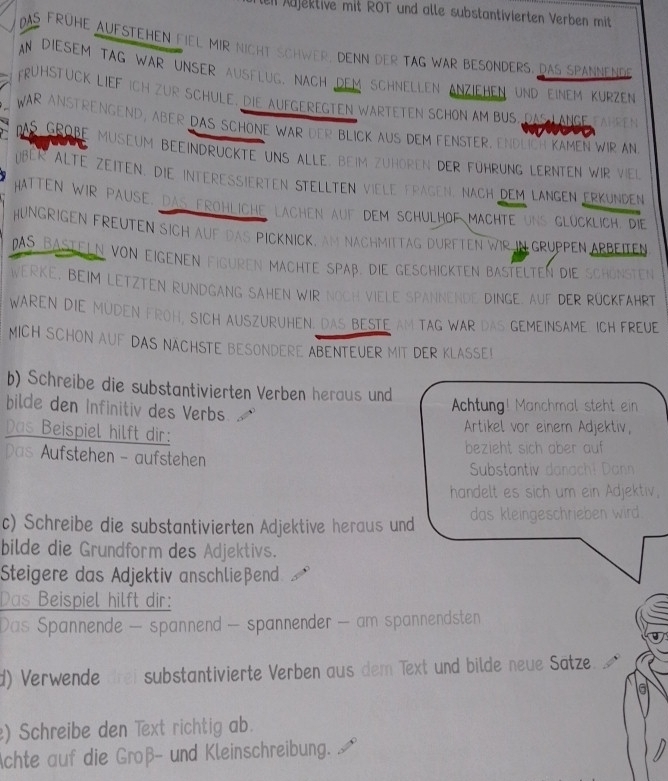 Adjektive mit ROT und alle substantivierten Verben mit
DAS FRÜHE AUFSTEHEN FIEL MIR NICHT SCHWER, DENN DER TAG WAR BESONDERS. DAS SPANNENDE
AN DIESEM TAG WAR UNSER AUSFLUG. NACH DEM SCHNELLEN ANZIEHEN UND EINEM KURZEN
FRÜHSTÜCK LIEF ICH ZUR SCHULE. DIE AUFGEREGTEN WARTETEN SCHON AM BUS. DAS LANGE FAHREN
WAR ANSTRENGEND, ABER DAS SCHÖNE WAR DER BLICK AUS DEM FENSTER. ENDLICH KAMEN WIR AN.
DAS GROßE MUSEUM BEEINDRUCKTE UNS ALLE. BEIM ZUHÖREN DER FÜHRUNG LERNTEN WIR VIEL
ÜBER ALTE ZEITEN. DIE INTERESSIERTEN STELLTEN VIELE FRAGEN. NACH DEM LANGEN ERKUNDEN
HATTEN WIR PAUSE. DAS FRÖHLICHE LACHEN AUF DEM SCHULHOF MACHTE UNS GLÜCKLICH. DIE
HUNGRIGEN FREUTEN SICH AUF DAS PICKNICK. AM NACHMITTAG DURFTEN WIR IN GRUPPEN ARBEITEN
DAS BASTELN VON EIGENEN FIGUREN MACHTE SPAß. DIE GESCHICKTEN BASTELTEN DIE SCHÖNSTEN
WERKE. BEIM LETZTEN RUNDGANG SAHEN WIR NOCH VIELE SPANNENDE DINGE. AUF DER RÜCKFAHRT
WAREN DIE MÜDEN FROH, SICH AUSZURUHEN. DAS BESTE AM TAG WAR DAS GEMEINSAME. ICH FREUE
MICH SCHON AUF DAS NÄCHSTE BESONDERE ABENTEUER MIT DER KLASSE!
b) Schreibe die substantivierten Verben heraus und
bilde den Infinitiv des Verbs.
Das Beispiel hilft dir:
Das Aufstehen – aufstehen
Achtung! Manchmal steht ein
Artikel vor einem Adjektiv,
bezieht sich aber auf
Substantiv danach! Dann
handelt es sich um ein Adjektiv,
das kleingeschrieben wird.
c) Schreibe die substantivierten Adjektive heraus und
bilde die Grundform des Adjektivs.
Steigere das Adjektiv anschließend.
Das Beispiel hilft dir:
Das Spannende – spannend – spannender – am spannendsten
d) Verwende drei substantivierte Verben aus dem Text und bilde neue Sätze.
e) Schreibe den Text richtig ab.
Achte auf die Groß- und Kleinschreibung.